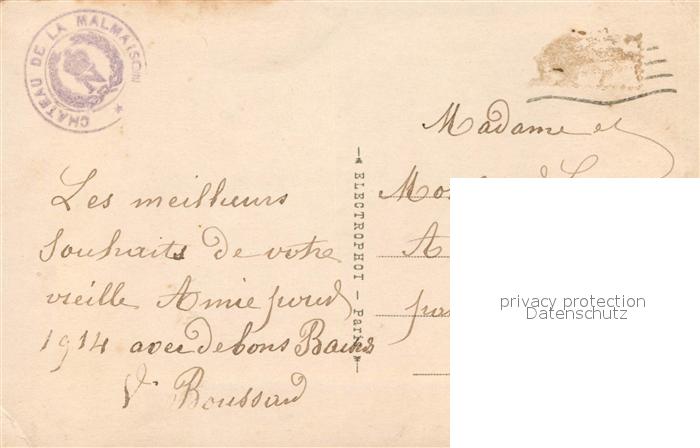 CHATEAU DE LA MALMAISON
N
Les meilleurs
souhaits de votre
vieille Amie pour
1914 avec de bons Baisers
V. Boussard
ELECTROPHOT - Paris
Madame et
A
privacy protection
Datenschutz